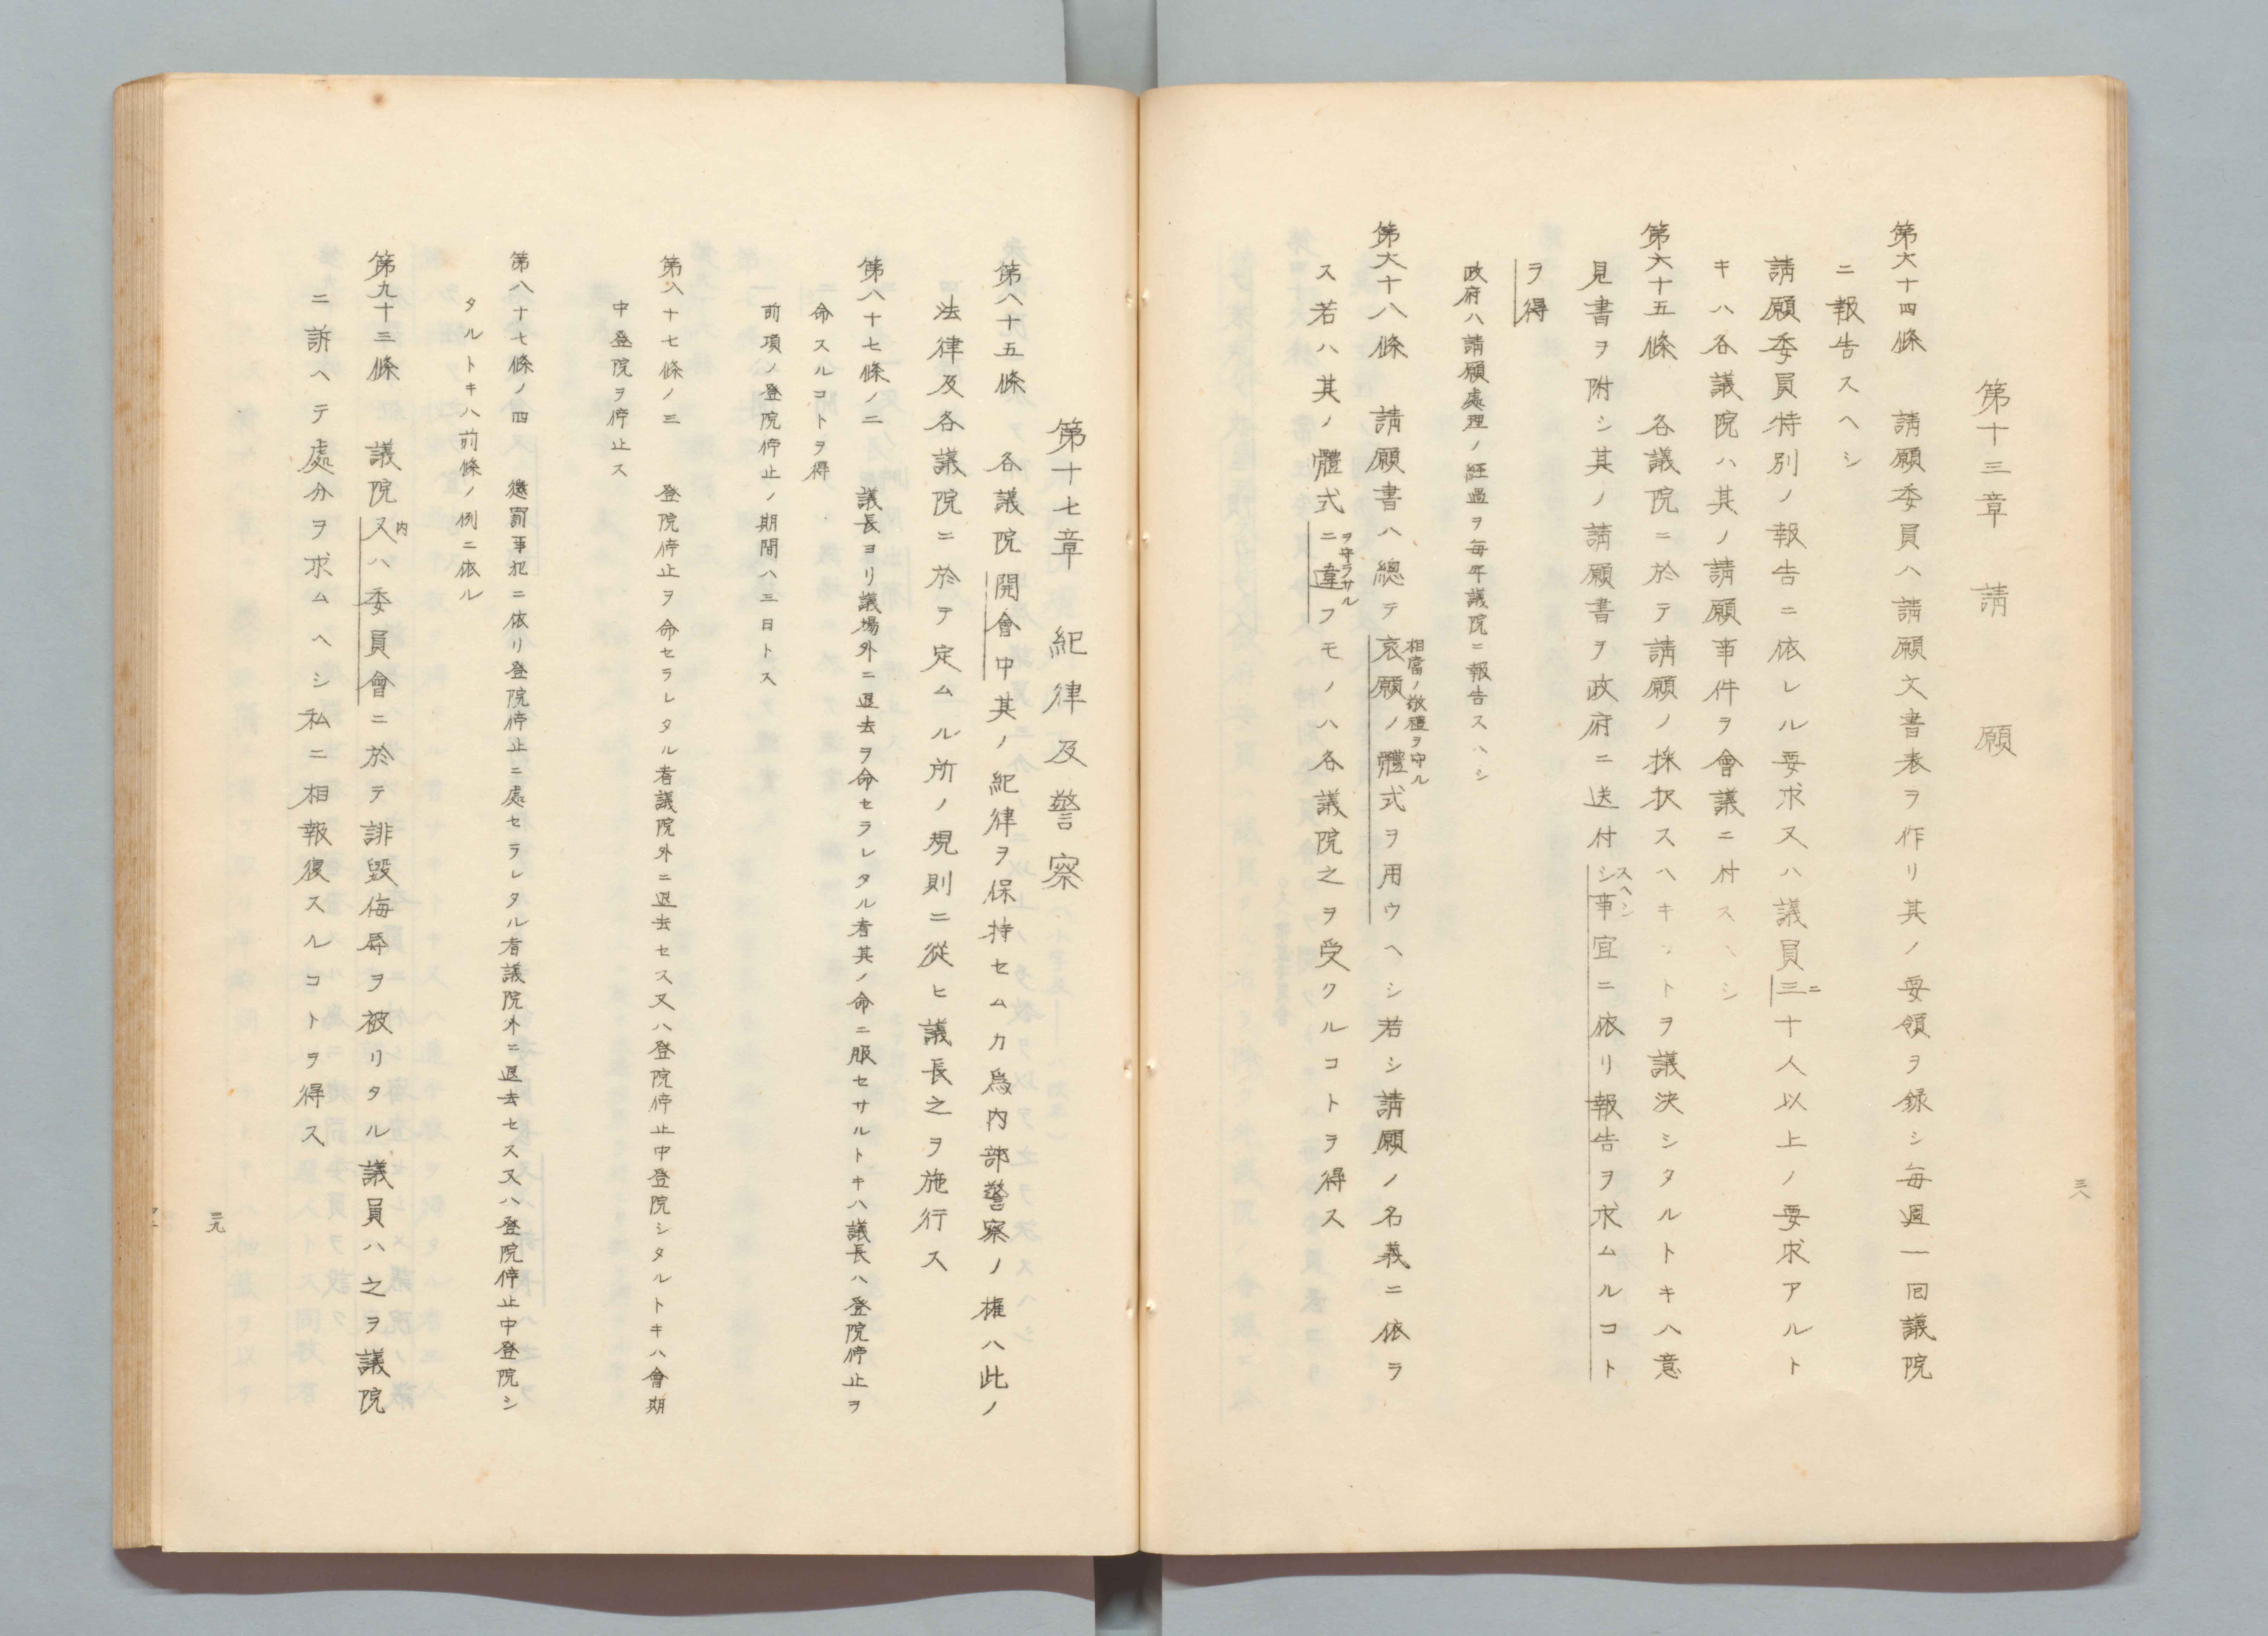 三八
第十三章　請願
第六十四條　請願委員ハ請願文書表ヲ作リ其ノ要領ヲ録シ毎週一回議院
ニ報告スヘシ
請願委員特別ノ報告ニ依レル要求又ハ議員三十人以上ノ要求アルト
ニ
キハ各議院ハ其ノ請願事件ヲ會議ニ付スヘシ
第六十五條　各議院ニ於テ請願ノ採択スヘキコトヲ議決シタルトキハ意
見書ヲ附シ其ノ請願書ヲ政府ニ送付シ事宜ニ依リ報告ヲ求ムルコト
スヘシ
ヲ得
政府ハ請願處理ノ経過ヲ毎年議院ニ報告スヘシ
第六十八條　請願書ハ總テ哀願ノ體式ヲ用ウヘシ若シ請願ノ名義ニ依ラ
相當ノ敬禮ヲ守ル
ス若ハ其ノ體式ニ違フモノハ各議院之ヲ受クルコトヲ得ス
ヲ守ラサル
第十七章　紀律及警察
第八十五條　各議院開會中其ノ紀律ヲ保持セムカ爲内部警察ノ權ハ此ノ
法律及各議院ニ於テ定ムル所ノ規則ニ從ヒ議長之ヲ施行ス
第八十七條ノ二　議長ヨリ議場外ニ退去ヲ命セラレタル者其ノ命ニ服セサルトキハ議長ハ登院停止ヲ
命スルコトヲ得
前項ノ登院停止ノ期間ハ三日トス
第八十七條ノ三　登院停止ヲ命セラレタル者議院外ニ退去セス又ハ登院停止中登院シタルトキハ會期
中登院ヲ停止ス
第八十七條ノ四　懲罰事犯ニ依リ登院停止ニ處セラレタル者議院外ニ退去セス又ハ登院停止中登院シ
タルトキハ前條ノ例ニ依ル
第九十三條　議院又ハ委員會ニ於テ誹毀侮辱ヲ被リタル議員ハ之ヲ議院
内
ニ訴ヘテ處分ヲ求ムヘシ私ニ相報復スルコトヲ得ス
三九